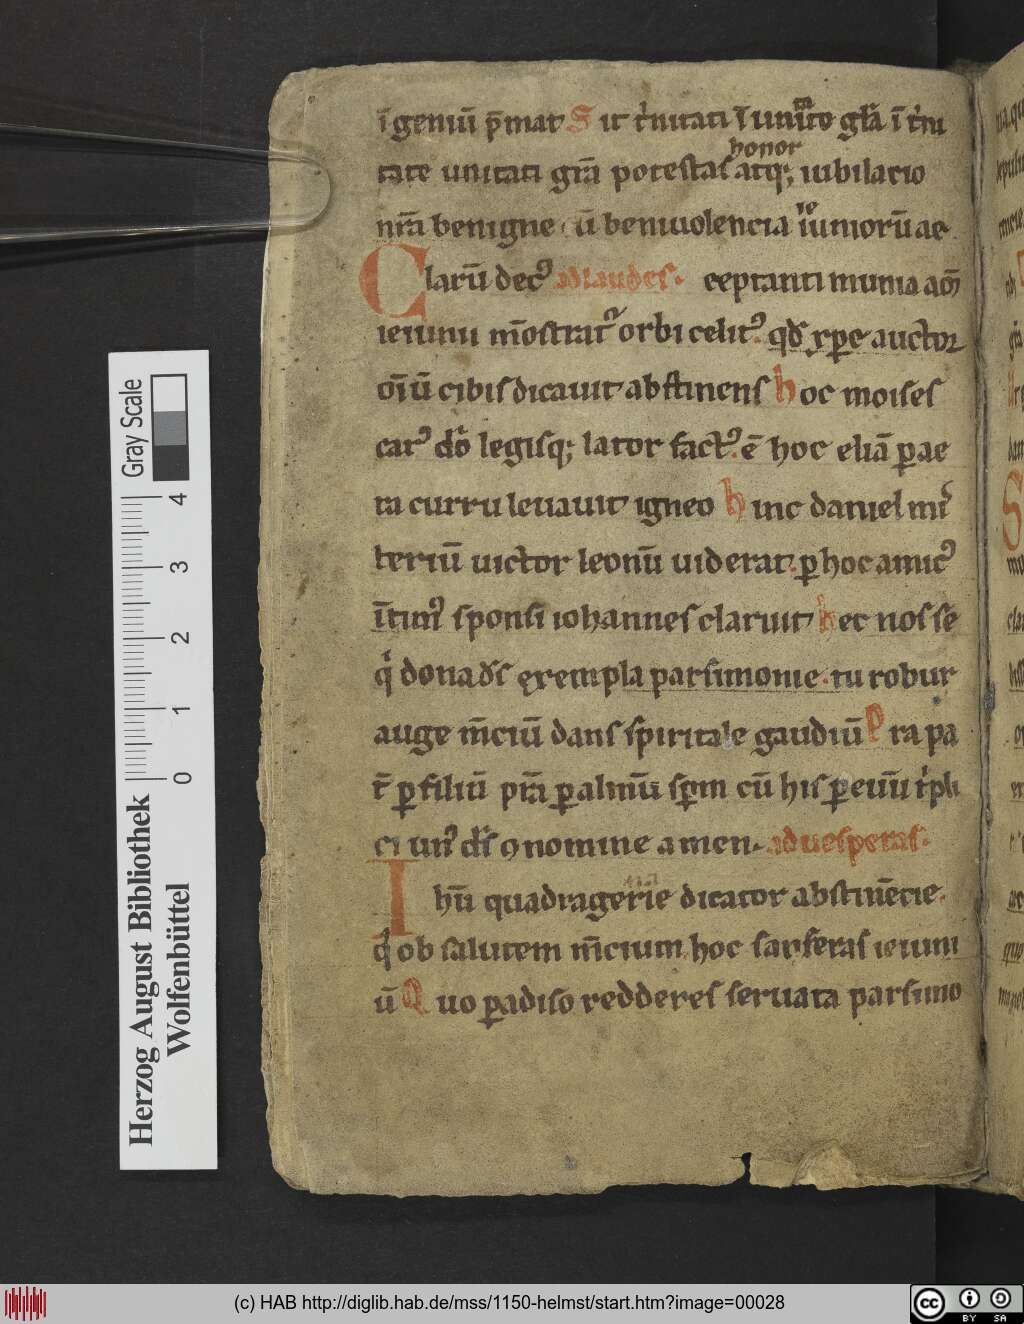 īgeniū p̄mat Sit t'nitati ī unit̄to gl̄a ī t'ni
honor
tate unitati gr̄a potestas atq; iubilatio
nr̄a benigne ū beniuolencia ieiuniorū ac
Clarū decꝰ ad laudes. ceptanti munia am̄
ieiunii m̄ostratꝰ orbi celitꝰ. qd̄ xp̄e auctor
oīū cibis dicauit abstinens hoc moises
carꝰ d̄o legisq; lator factꝰ. ē hoc eliā p ae
ra curru leuauit igneo hinc daniel mis
teriū uictor leonū uiderat. p hoc amicꝰ
ītimꝰ sponsi iohannes claruit hec nos se
q̇ dona d̄s exempla parsimonie. tu robur
auge m̄ciū dans spiritale gaudiū Pra pa
t̄ p filiū pr̄a p almū sp̄m cū his p euū t'pli
ci unꝰ d̄s ꝯnomine amen. ad uesperas.
Ihū quadragerie dicator abstinēcie.
q̇ ob salutem m̄cium hoc sanseras ieiuni
ū Quo padiso redderes seruata parsimo
Gray Scale
4
3
2
1
0
Herzog August Bibliothek
Wolfenbüttel
(c) HAB http://diglib.hab.de/mss/1150-helmst/start.htm?image=00028
cc BY SA